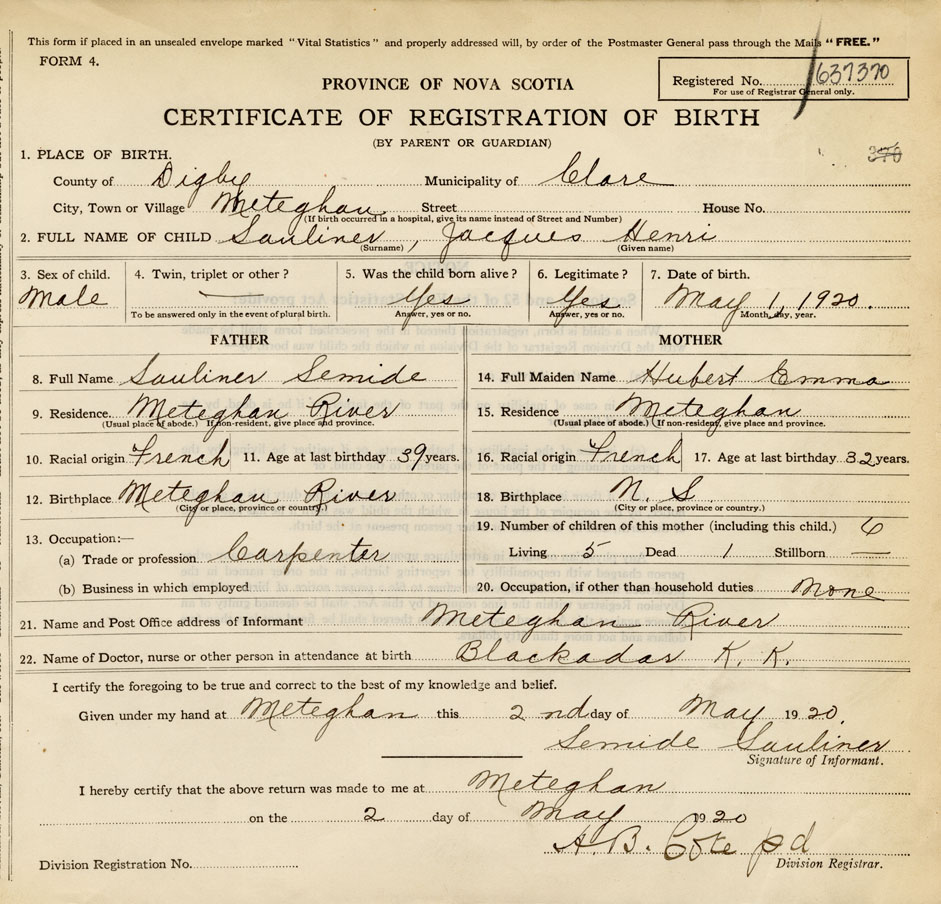 This form if placed in an unsealed envelope marked "Vital Statistics" and properly addressed will, by order of the Postmaster General pass through the Mails "FREE."
FORM 4.
Registered No. 637370
For use of Registrar General only.
PROVINCE OF NOVA SCOTIA
CERTIFICATE OF REGISTRATION OF BIRTH
(BY PARENT OR GUARDIAN)
370
1. PLACE OF BIRTH.
County of Digby Municipality of Clare
City, Town or Village Meteghan Street House No.
(If birth occurred in a hospital, give its name instead of Street and Number)
2. FULL NAME OF CHILD Sauliner, Jacques Henri
(Surname) (Given name)
3. Sex of child. 4. Twin, triplet or other? 5. Was the child born alive? 6. Legitimate? 7. Date of birth.
Male — Yes Yes May 1, 1920.
To be answered only in the event of plural birth. Answer, yes or no. Answer, yes or no. Month, day, year.
FATHER MOTHER
8. Full Name Sauliner Semide 14. Full Maiden Name Hubert Emma
9. Residence. Meteghan River 15. Residence Meteghan
(Usual place of abode.) If non-resident, give place and province. (Usual place of abode.) (If non-resident, give place and province.
10. Racial origin French 11. Age at last birthday 39 years. 16. Racial origin French 17. Age at last birthday 32 years.
12. Birthplace Meteghan River 18. Birthplace N. S
(City or place, province or country.) (City or place, province or country.)
19. Number of children of this mother (including this child.) 6
13. Occupation:—
(a) Trade or profession Carpenter Living 5 Dead 1 Stillborn —
(b) Business in which employed 20. Occupation, if other than household duties None
21. Name and Post Office address of Informant Meteghan River
22. Name of Doctor, nurse or other person in attendance at birth Blackadar K. K.
I certify the foregoing to be true and correct to the best of my knowledge and belief.
Given under my hand at Meteghan this 2nd day of May 1920.
Semide Sauliner
Signature of Informant.
I hereby certify that the above return was made to me at Meteghan
on the 2 day of May 1920
A. B. Cote pd
Division Registration No. Division Registrar.